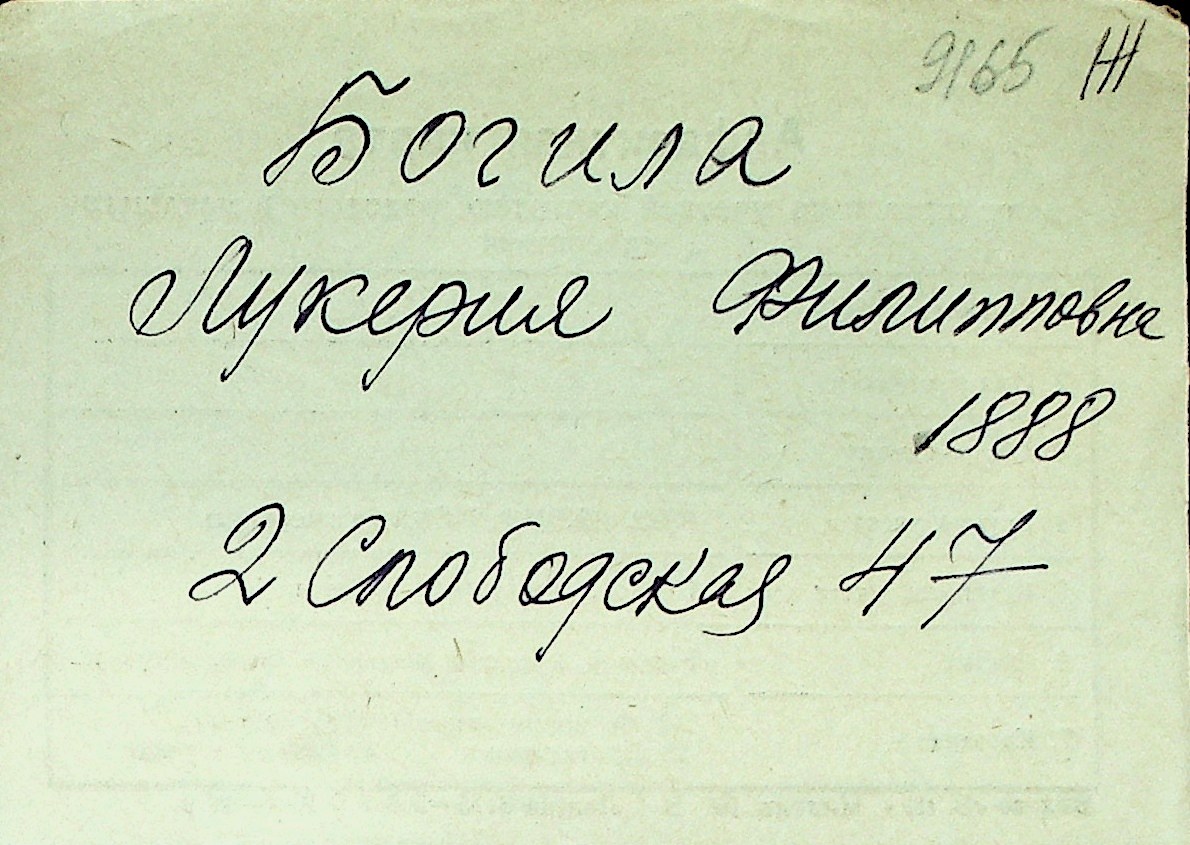 9165 Ж
Богила
Лукерия Филипповна
1888
2 Слободская 47